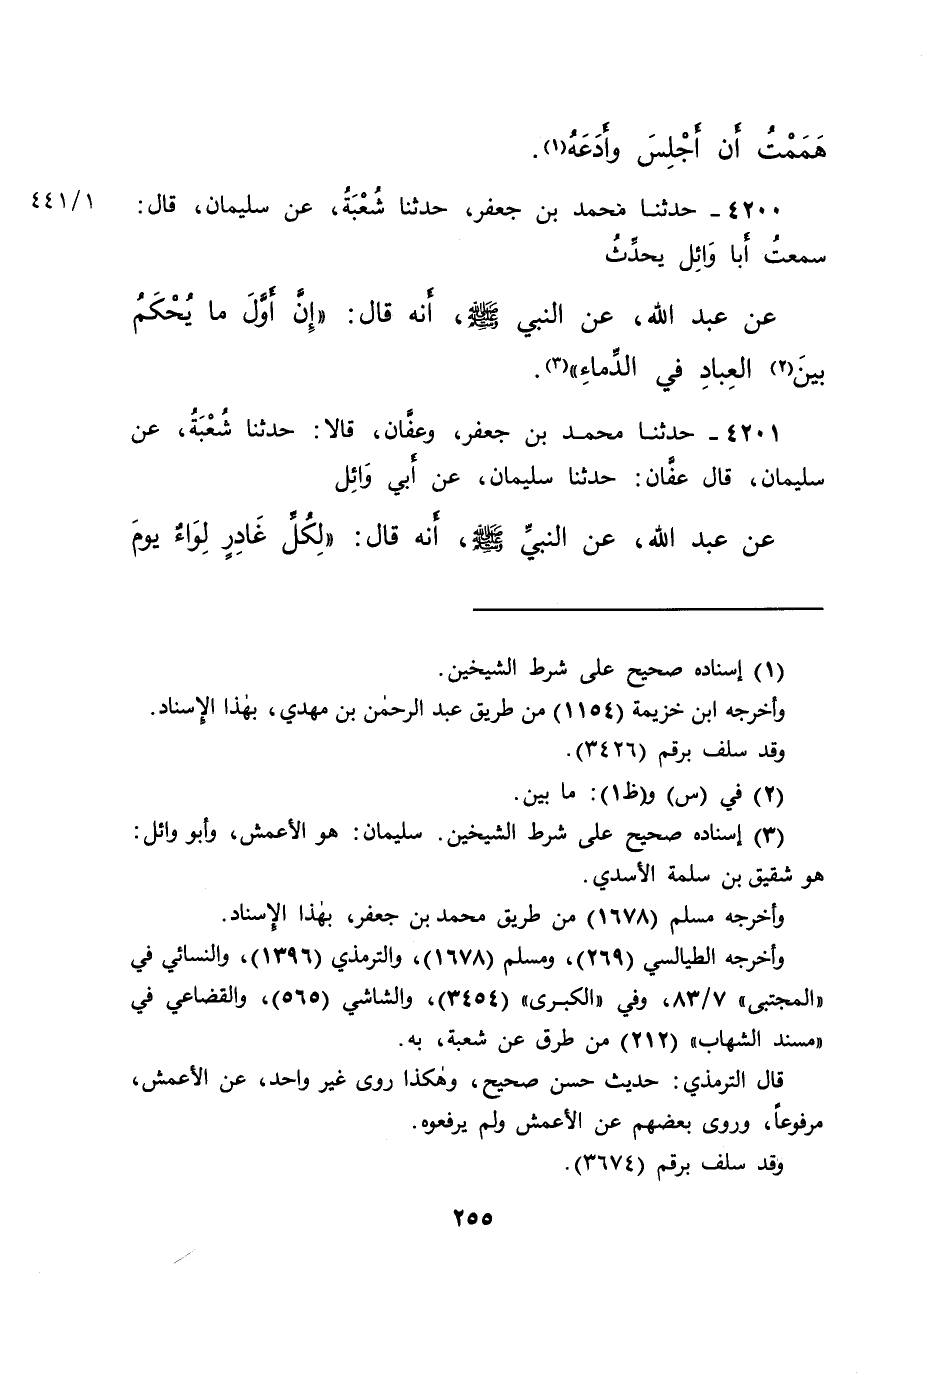 هَمَمْتُ أَن أَجْلِسَ وأَدَعَهُ(١).
٤٢٠٠ ـ حدثنا محمد بن جعفر، حدثنا شُعْبَةُ، عن سليمان، قال: ٤٤١/١
سمعتُ أَبا وَائِل يحدِّثُ
عن عبد الله، عن النبي ﷺ، أَنه قال: «إِنَّ أَوَّلَ ما يُحْكَمُ
بينَ(٢) العِبادِ في الدِّماءِ»(٣).
٤٢٠١ ـ حدثنا محمد بن جعفر، وعفَّان، قالا: حدثنا شُعْبَةُ، عن
سليمان، قال عفَّان: حدثنا سليمان، عن أَبي وَائِل
عن عبد الله، عن النبيِّ ﷺ، أَنه قال: «لِكُلِّ غَادِرٍ لِوَاءٌ يومَ
(١) إسناده صحيح على شرط الشيخين.
وأخرجه ابن خزيمة (١١٥٤) من طريق عبد الرحمٰن بن مهدي، بهٰذا الإسناد.
وقد سلف برقم (٣٤٢٦).
(٢) في (س) و(ظ١): ما بين.
(٣) إسناده صحيح على شرط الشيخين. سليمان: هو الأعمش، وأبو وائل:
هو شقيق بن سلمة الأسدي.
وأخرجه مسلم (١٦٧٨) من طريق محمد بن جعفر، بهٰذا الإسناد.
وأخرجه الطيالسي (٢٦٩)، ومسلم (١٦٧٨)، والترمذي (١٣٩٦)، والنسائي في
«المجتبى» ٨٣/٧، وفي «الكبرى» (٣٤٥٤)، والشاشي (٥٦٥)، والقضاعي في
«مسند الشهاب» (٢١٢) من طرق عن شعبة، به.
قال الترمذي: حديث حسن صحيح، وهٰكذا روى غير واحد، عن الأعمش،
مرفوعاً، وروى بعضهم عن الأعمش ولم يرفعوه.
وقد سلف برقم (٣٦٧٤).
٢٥٥